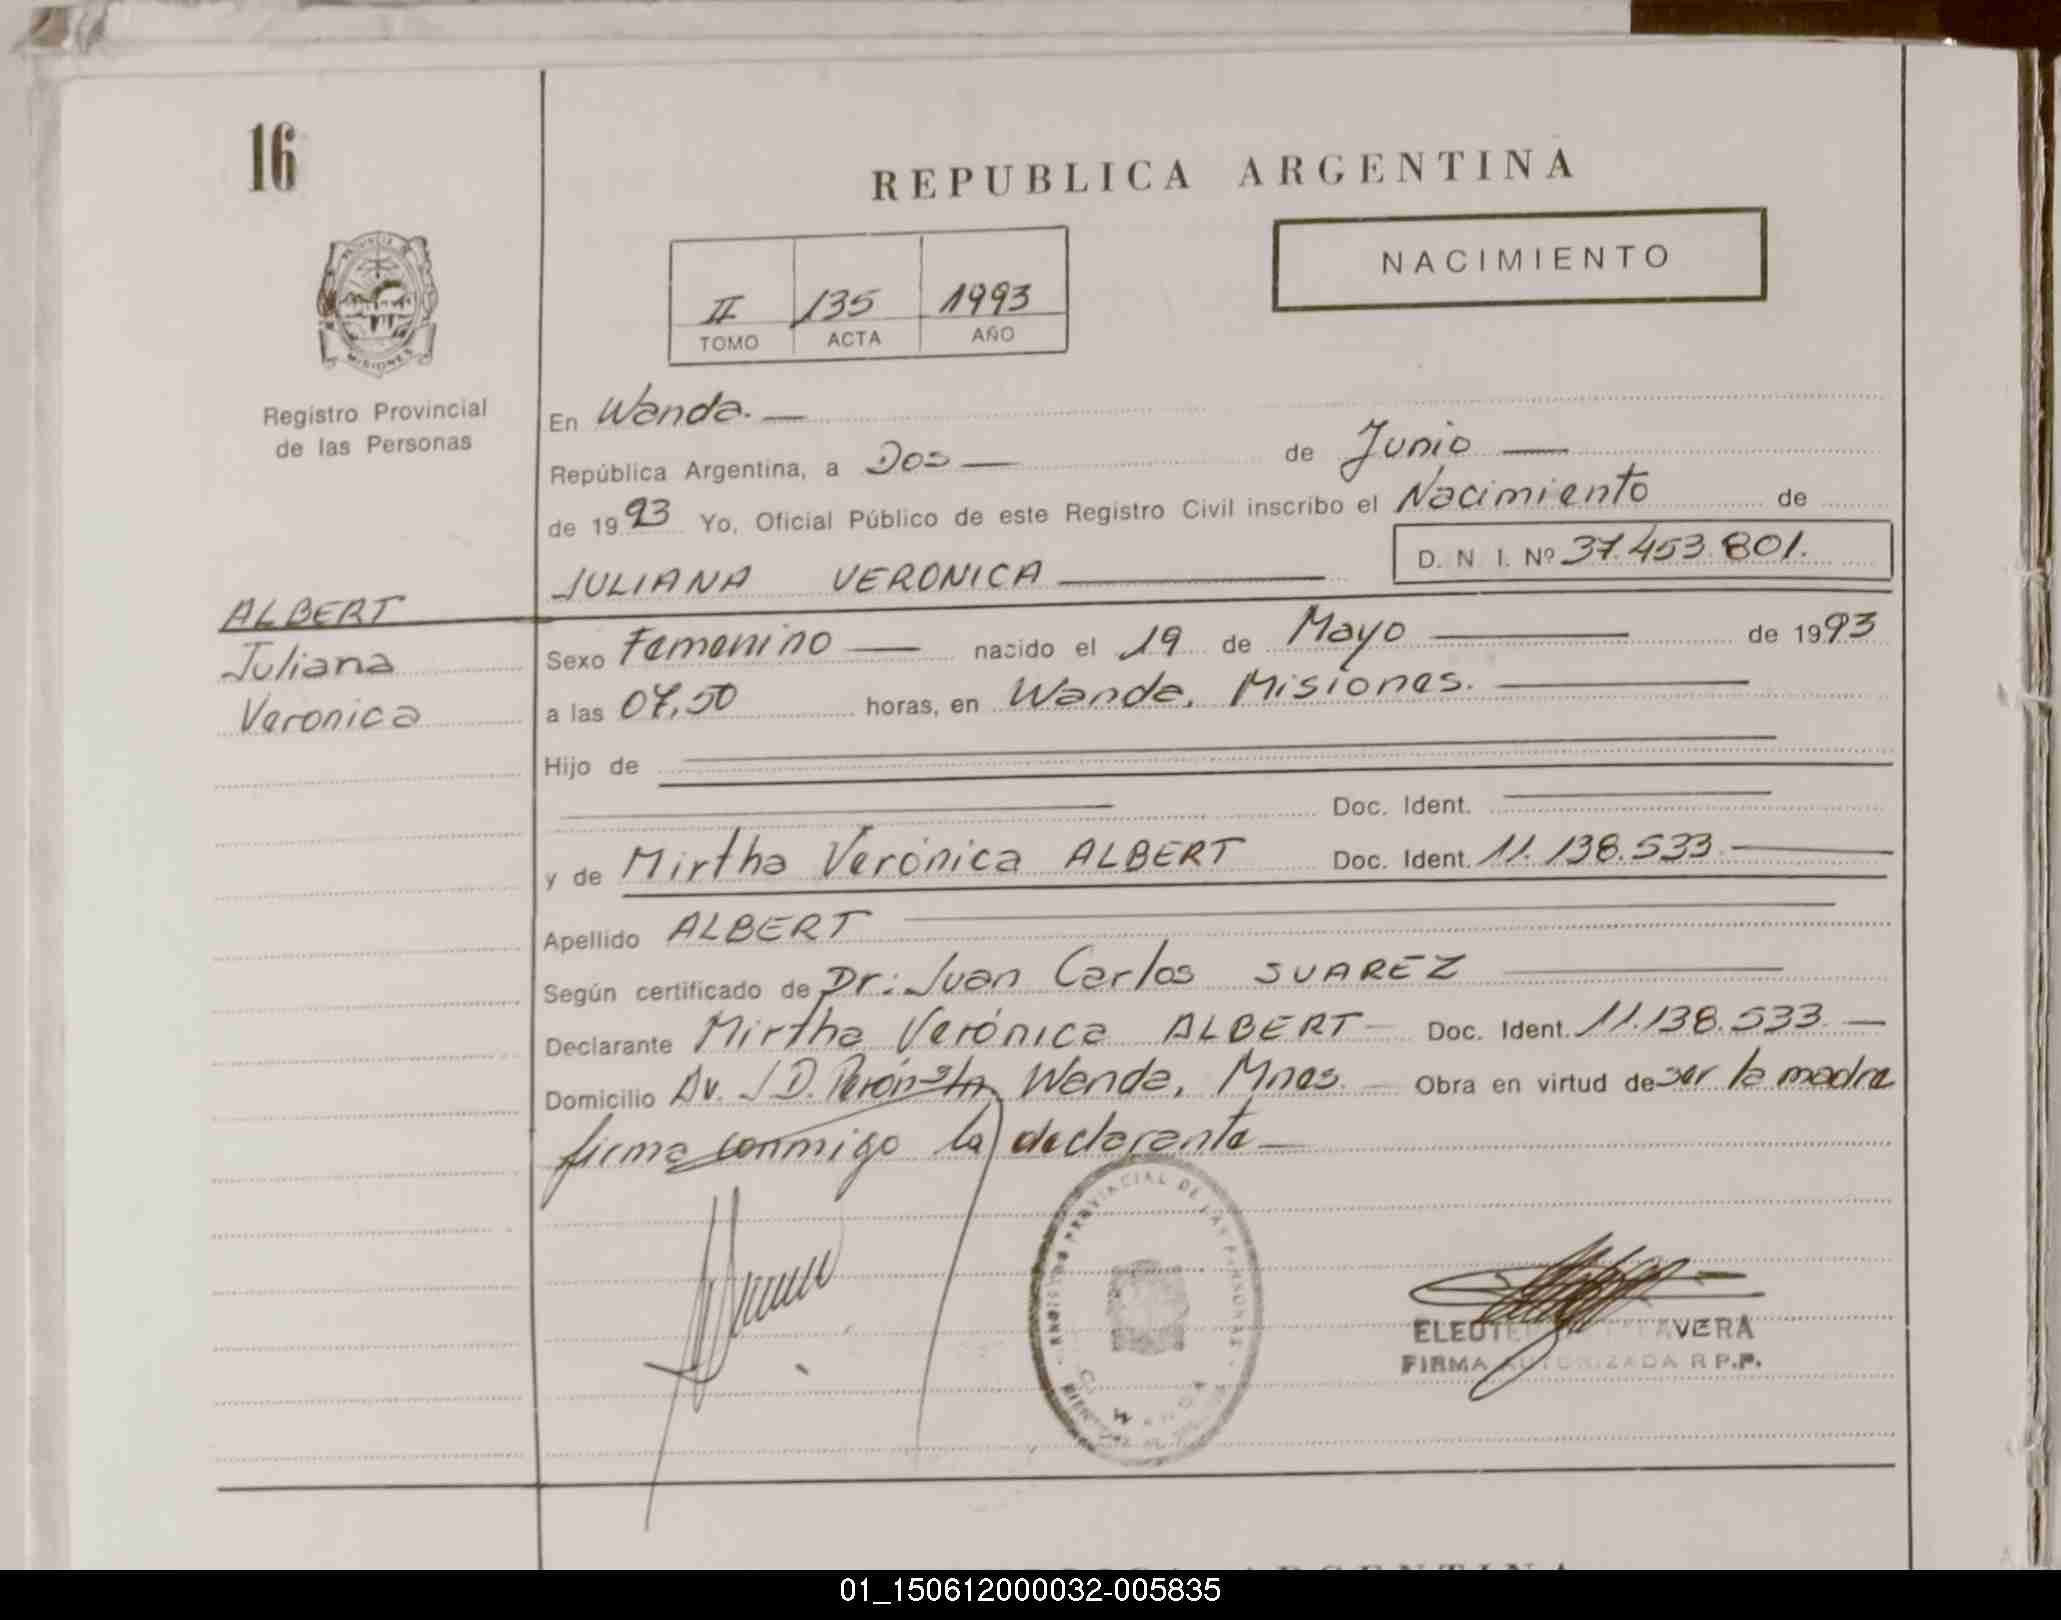 16
REPUBLICA ARGENTINA
NACIMIENTO
II 135 1993
TOMO ACTA AÑO
MISIONES
Registro Provincial
de las Personas
En Wanda.—
República Argentina, a Dos — de Junio —
de 1993 Yo, Oficial Público de este Registro Civil inscribo el Nacimiento de
JULIANA VERONICA — D. N. I. Nº 37.453.801.
ALBERT
Juliana
Veronica
Sexo Femenino — nacido el 19 de Mayo — de 1993
a las 07,50 horas, en Wanda, Misiones. —
Hijo de —
— Doc. Ident. —
y de Mirtha Verónica ALBERT Doc. Ident. 11.138.533 —
Apellido ALBERT —
Según certificado de Dr: Juan Carlos SUAREZ —
Declarante Mirtha Verónica ALBERT — Doc. Ident. 11.138.533. —
Domicilio Av. J D. Perón s/n Wanda, Mnes. — Obra en virtud de ser la madre
firma conmigo la declarante —
REGISTRO PROVINCIAL DE LAS PERSONAS
WANDA
AVERA
FIRMA AUTORIZADA R.P.P.
01_150612000032-005835